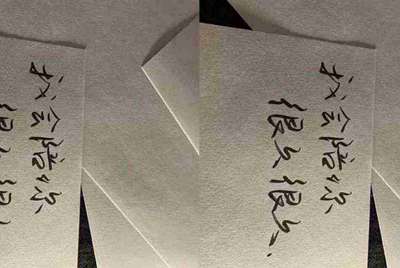 我会陪你
很久很久
我会陪你
很久很久.